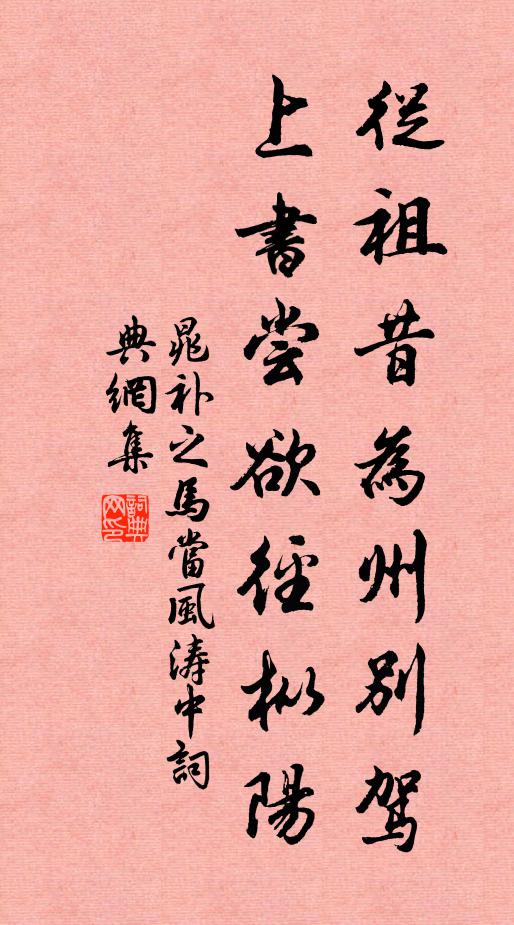 從祖昔為州別駕
上書嘗欲徑樅陽
晁補之馬當風濤中詞
典網集
詞典网印